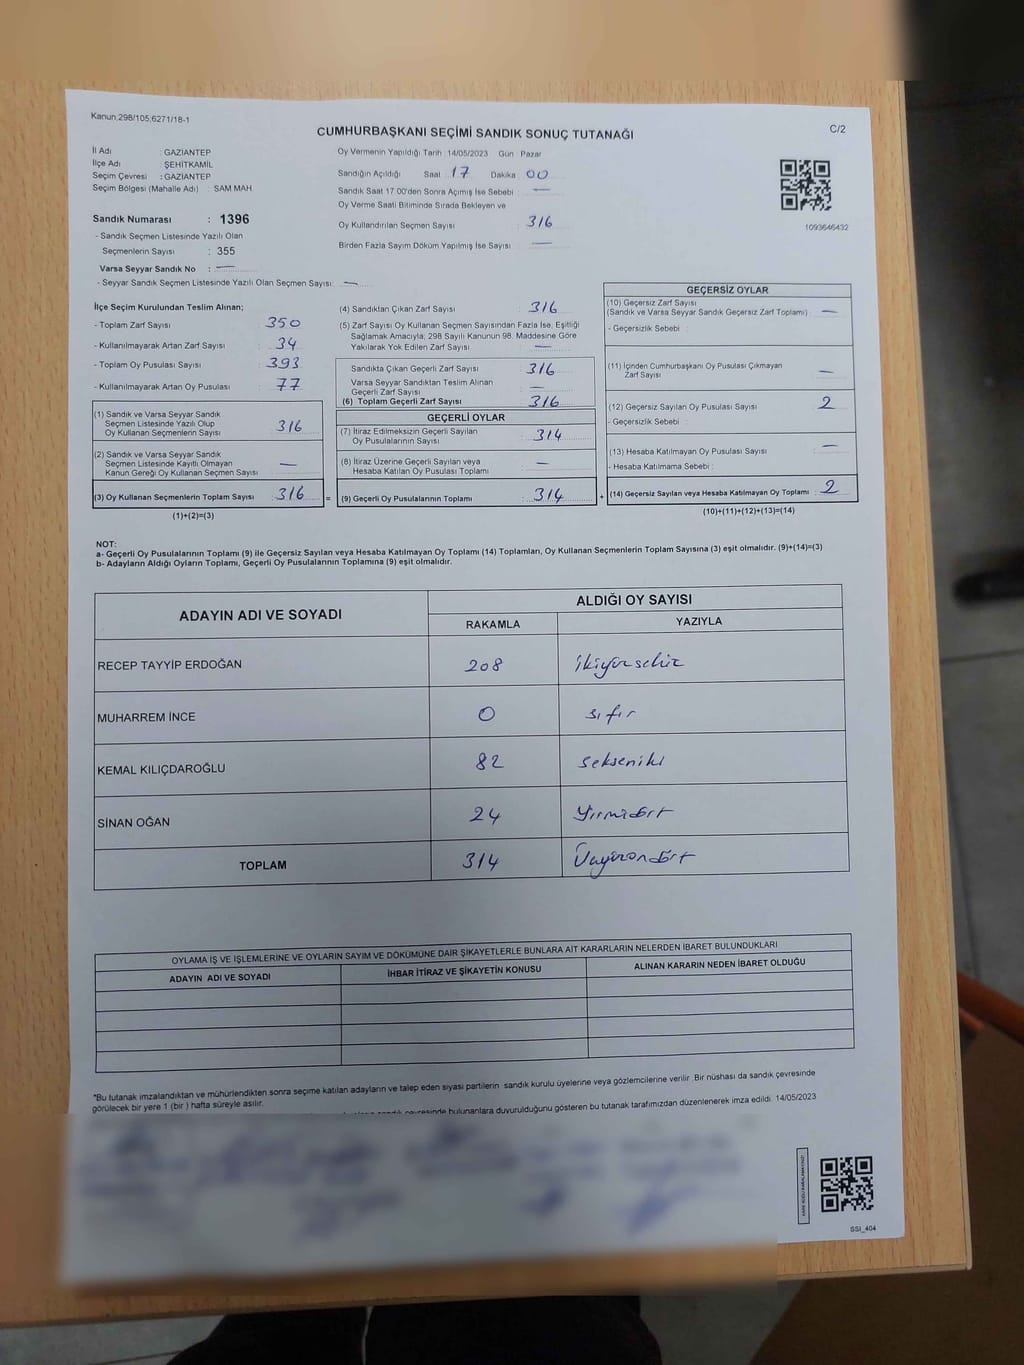 Kanun.298/105;6271/18-1
CUMHURBAŞKANI SEÇİMİ SANDIK SONUÇ TUTANAĞI
C/2
İl Adı : GAZİANTEP
İlçe Adı : ŞEHİTKAMİL
Seçim Çevresi : GAZİANTEP
Seçim Bölgesi (Mahalle Adı) : SAM MAH
Sandık Numarası : 1396
- Sandık Seçmen Listesinde Yazılı Olan
Seçmenlerin Sayısı : 355
Varsa Seyyar Sandık No : —
- Seyyar Sandık Seçmen Listesinde Yazılı Olan Seçmen Sayısı: —
Oy Vermenin Yapıldığı Tarih : 14/05/2023 Gün Pazar
Sandığın Açıldığı Saat : 17 Dakika 00
Sandık Saat 17:00'den Sonra Açımış İse Sebebi : —
Oy Verme Saati Bitiminde Sırada Bekleyen ve
Oy Kullandırılan Seçmen Sayısı : 316
Birden Fazla Sayım Döküm Yapılmış İse Sayısı : —
1093646432
İlçe Seçim Kurulundan Teslim Alınan;
- Toplam Zarf Sayısı : 350
- Kullanılmayarak Artan Zarf Sayısı : 34
- Toplam Oy Pusulası Sayısı : 393
- Kullanılmayarak Artan Oy Pusulası : 77
(1) Sandık ve Varsa Seyyar Sandık
Seçmen Listesinde Yazılı Olup
Oy Kullanan Seçmenlerin Sayısı : 316
(2) Sandık ve Varsa Seyyar Sandık
Seçmen Listesinde Kayıtlı Olmayan
Kanun Gereği Oy Kullanan Seçmen Sayısı : —
(3) Oy Kullanan Seçmenlerin Toplam Sayısı : 316 =
(1)+(2)=(3)
(4) Sandıktan Çıkan Zarf Sayısı : 316
(5) Zarf Sayısı Oy Kullanan Seçmen Sayısından Fazla İse, Eşitliği
Sağlamak Amacıyla; 298 Sayılı Kanunun 98. Maddesine Göre
Yakılarak Yok Edilen Zarf Sayısı : —
Sandıkta Çıkan Geçerli Zarf Sayısı : 316
Varsa Seyyar Sandıktan Teslim Alınan
Geçerli Zarf Sayısı : —
(6) Toplam Geçerli Zarf Sayısı : 316
GEÇERLİ OYLAR
(7) İtiraz Edilmeksizin Geçerli Sayılan
Oy Pusulalarının Sayısı : 314
(8) İtiraz Üzerine Geçerli Sayılan veya
Hesaba Katılan Oy Pusulası Toplamı : —
(9) Geçerli Oy Pusulalarının Toplamı : 314 +
GEÇERSİZ OYLAR
(10) Geçersiz Zarf Sayısı
(Sandık ve Varsa Seyyar Sandık Geçersiz Zarf Toplamı) : —
- Geçersizlik Sebebi :
(11) İçinden Cumhurbaşkanı Oy Pusulası Çıkmayan
Zarf Sayısı : —
(12) Geçersiz Sayılan Oy Pusulası Sayısı : 2
- Geçersizlik Sebebi :
(13) Hesaba Katılmayan Oy Pusulası Sayısı : —
- Hesaba Katılmama Sebebi :
(14) Geçersiz Sayılan veya Hesaba Katılmayan Oy Toplamı : 2
(10)+(11)+(12)+(13)=(14)
NOT:
a- Geçerli Oy Pusulalarının Toplamı (9) ile Geçersiz Sayılan veya Hesaba Katılmayan Oy Toplamı (14) Toplamları, Oy Kullanan Seçmenlerin Toplam Sayısına (3) eşit olmalıdır. (9)+(14)=(3)
b- Adayların Aldığı Oyların Toplamı, Geçerli Oy Pusulalarının Toplamına (9) eşit olmalıdır.
ADAYIN ADI VE SOYADI
ALDIĞI OY SAYISI
RAKAMLA YAZIYLA
RECEP TAYYİP ERDOĞAN 208 ikiyüzsekiz
MUHARREM İNCE 0 sıfır
KEMAL KILIÇDAROĞLU 82 sekseniki
SİNAN OĞAN 24 Yirmidört
TOPLAM 314 Üçyüzondört
OYLAMA İŞ VE İŞLEMLERİNE VE OYLARIN SAYIM VE DÖKÜMÜNE DAİR ŞİKAYETLERLE BUNLARA AİT KARARLARIN NELERDEN İBARET BULUNDUKLARI
ADAYIN ADI VE SOYADI İHBAR İTİRAZ VE ŞİKAYETİN KONUSU ALINAN KARARIN NEDEN İBARET OLDUĞU
"Bu tutanak imzalandıktan ve mühürlendikten sonra seçime katılan adayların ve talep eden siyasi partilerin sandık kurulu üyelerine veya gözlemcilerine verilir .Bir nüshası da sandık çevresinde
görülecek bir yere 1 (bir ) hafta süreyle asılır.
sandık çevresinde bulunanlara duyurulduğunu gösteren bu tutanak tarafımızdan düzenlenerek imza edildi. 14/05/2023
SSI_404